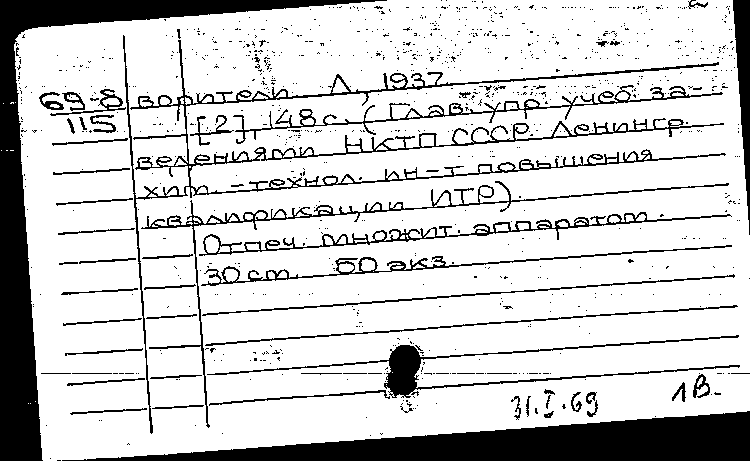 69-8
115
ворители Л., 1937.
[2], 148 с. (Глав. упр. учеб. за-
ведениями НКТП СССР. Ленингр.
хим.-технол. ин-т повышения
квалификации ИТР).
Отпеч. множит. аппаратом.
30 см. 50 экз.
31.I.69 1В.